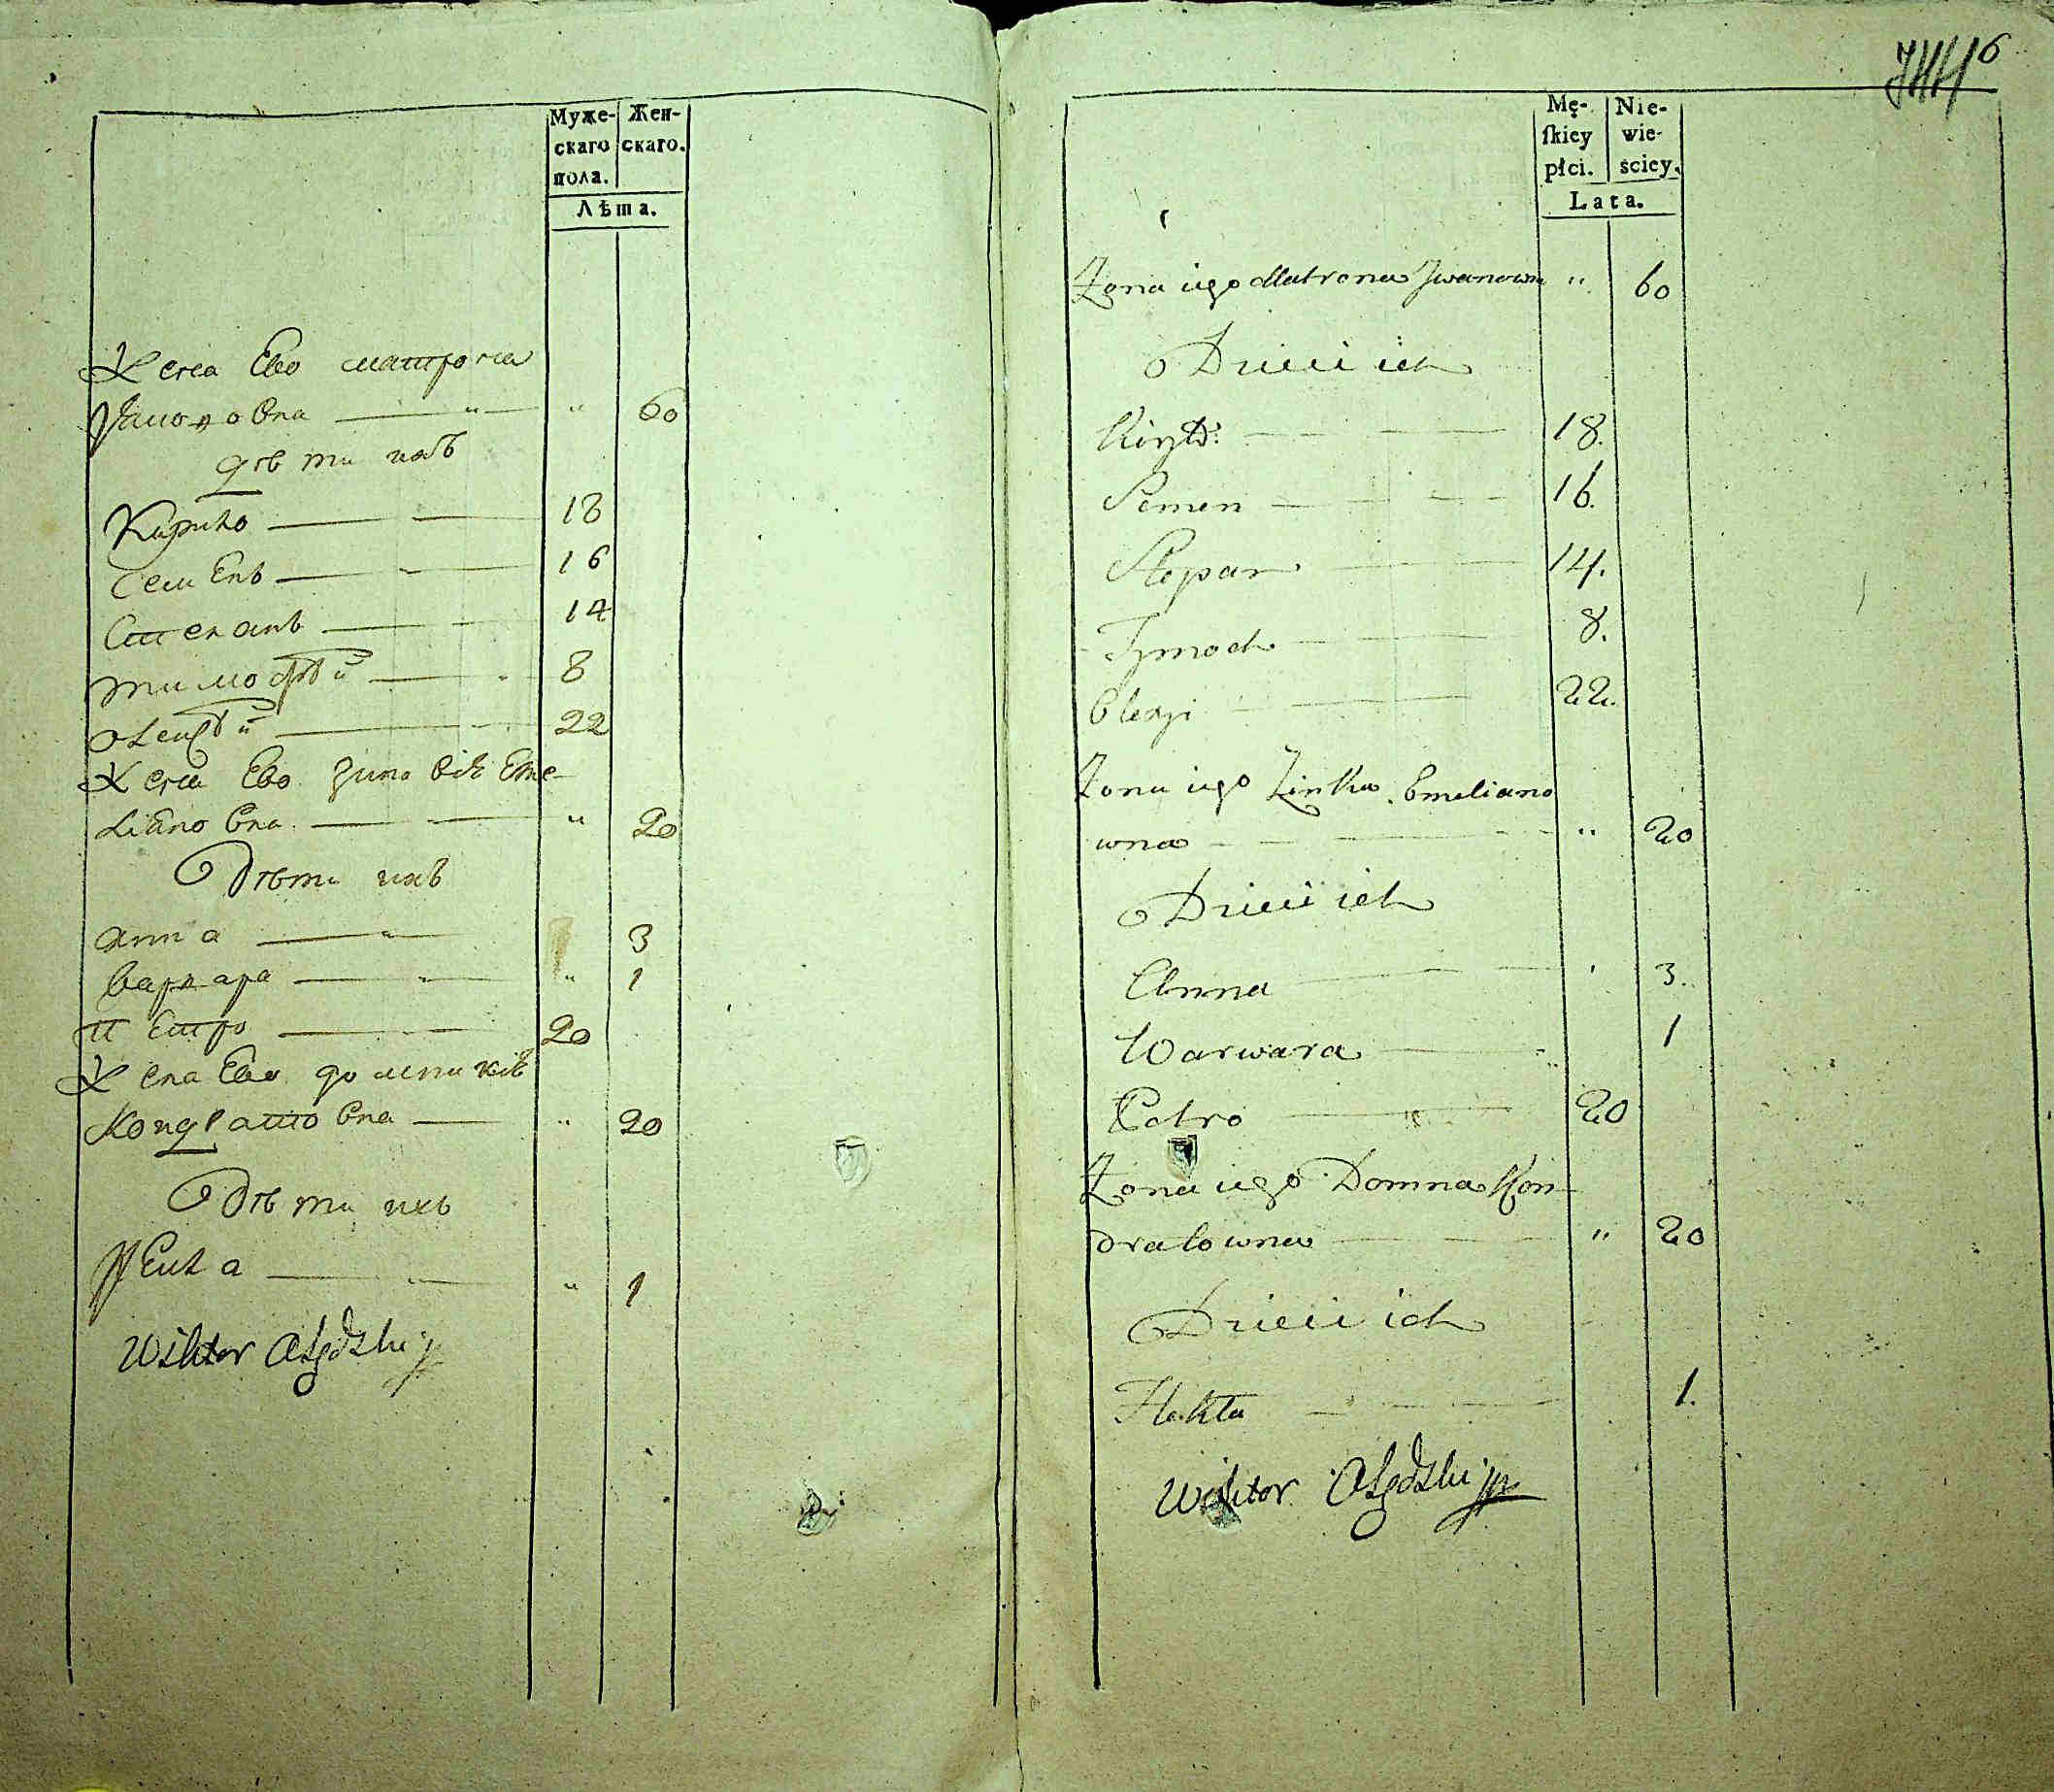 Муже-
скаго
пола.
Жен-
скаго.
Лѣта.
Жена Ево матрона
60
дѣти ихъ
Кирило 18
Семенъ 16
Степанъ 14
тимофѣй 8
22
Жена Ево Зиновія Еме-
лiановна " 20
Дѣти ихъ
анна 3
варвара " 1
петро 20
Жена Ево
Кондратовна " 20
Дѣти ихъ
" 1
Wiktor
6
Mę-
ſkiey
płci.
Nie-
wie-
ściey.
Lata.
Żona iego Matrona Iwanowna " 60
Dzieci ich
18.
Semen 16.
Stepan 14.
Tymoch 8.
Olexyi 22.
Żona iego Zinka Emeliano
wna " 20
Dzieci ich
Anna 3.
Warwara 1
Petro 20
Żona iego Domna Kon-
dratowna " 20
Dzieci ich
1.
Wiktor